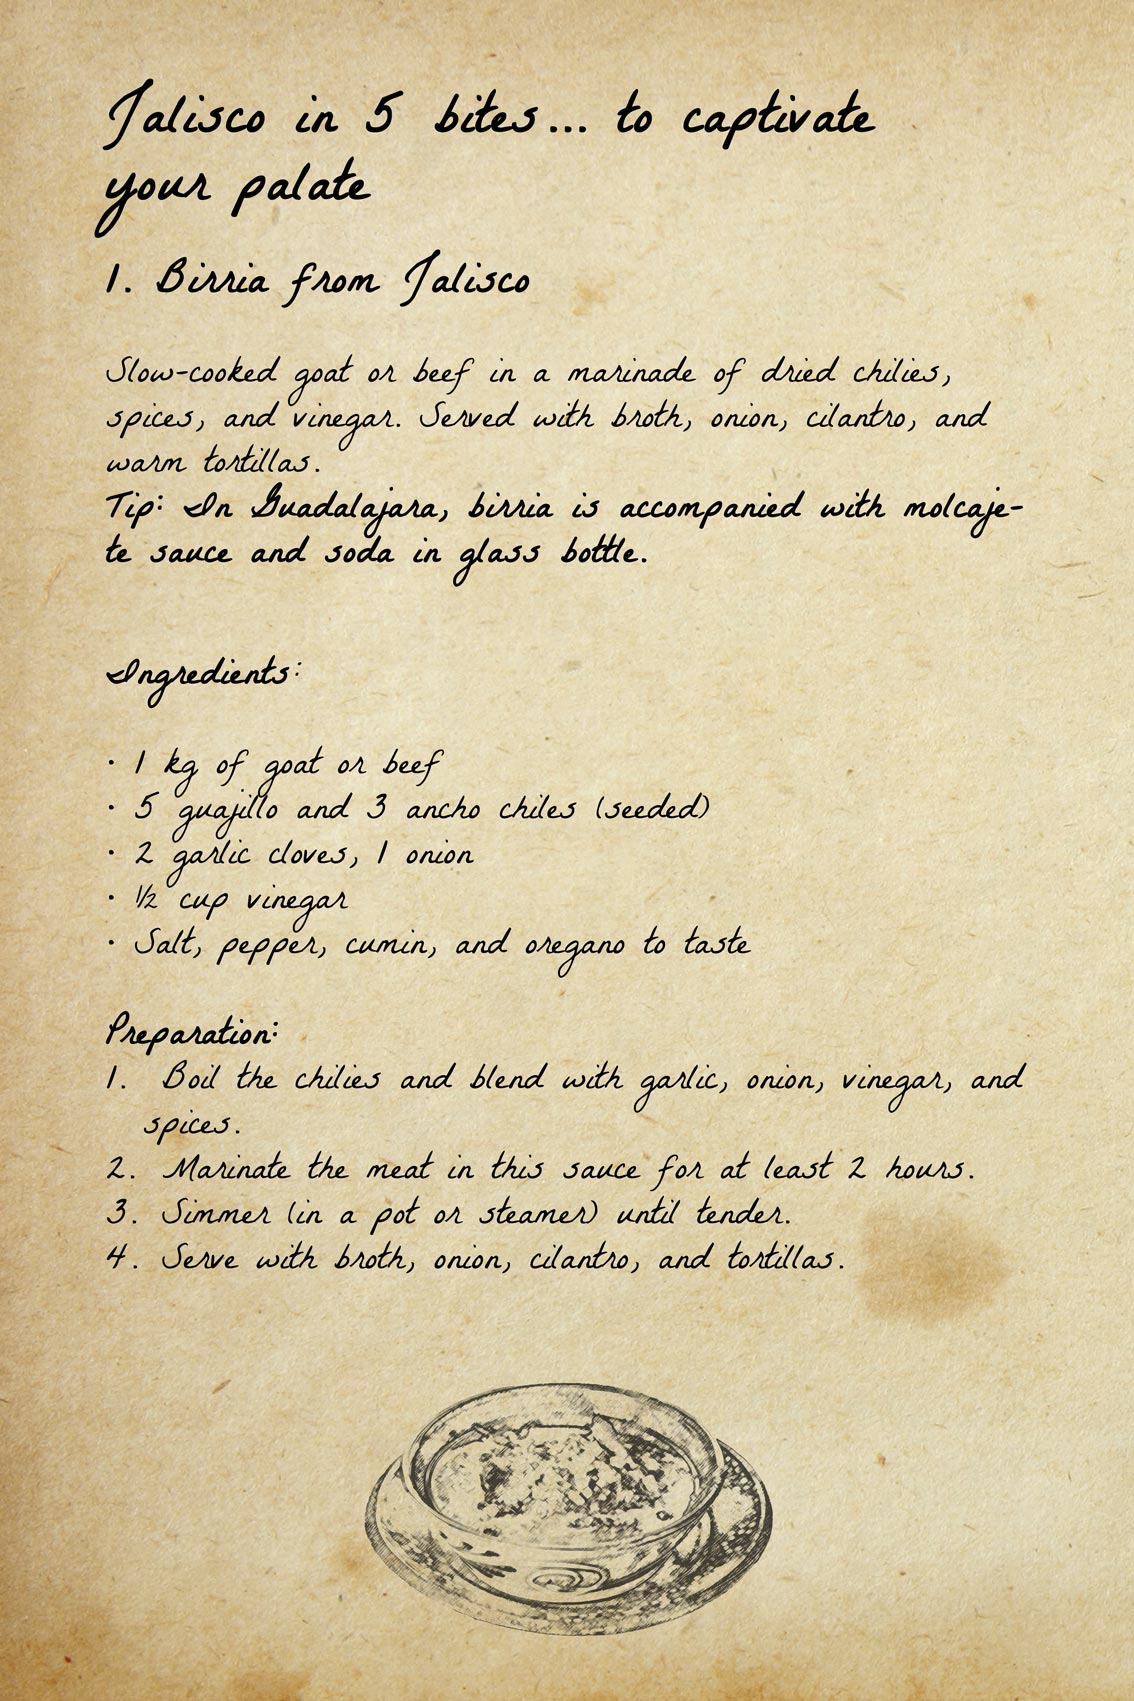 Jalisco in 5 bites... to captivate
your palate
1. Birria from Jalisco
Slow-cooked goat or beef in a marinade of dried chilies,
spices, and vinegar. Served with broth, onion, cilantro, and
warm tortillas.
Tip: In Guadalajara, birria is accompanied with molcaje-
te sauce and soda in glass bottle.
Ingredients:
• 1 kg of goat or beef
• 5 guajillo and 3 ancho chiles (seeded)
• 2 garlic cloves, 1 onion
• ½ cup vinegar
• Salt, pepper, cumin, and oregano to taste
Preparation:
1. Boil the chilies and blend with garlic, onion, vinegar, and
spices.
2. Marinate the meat in this sauce for at least 2 hours.
3. Simmer (in a pot or steamer) until tender.
4. Serve with broth, onion, cilantro, and tortillas.